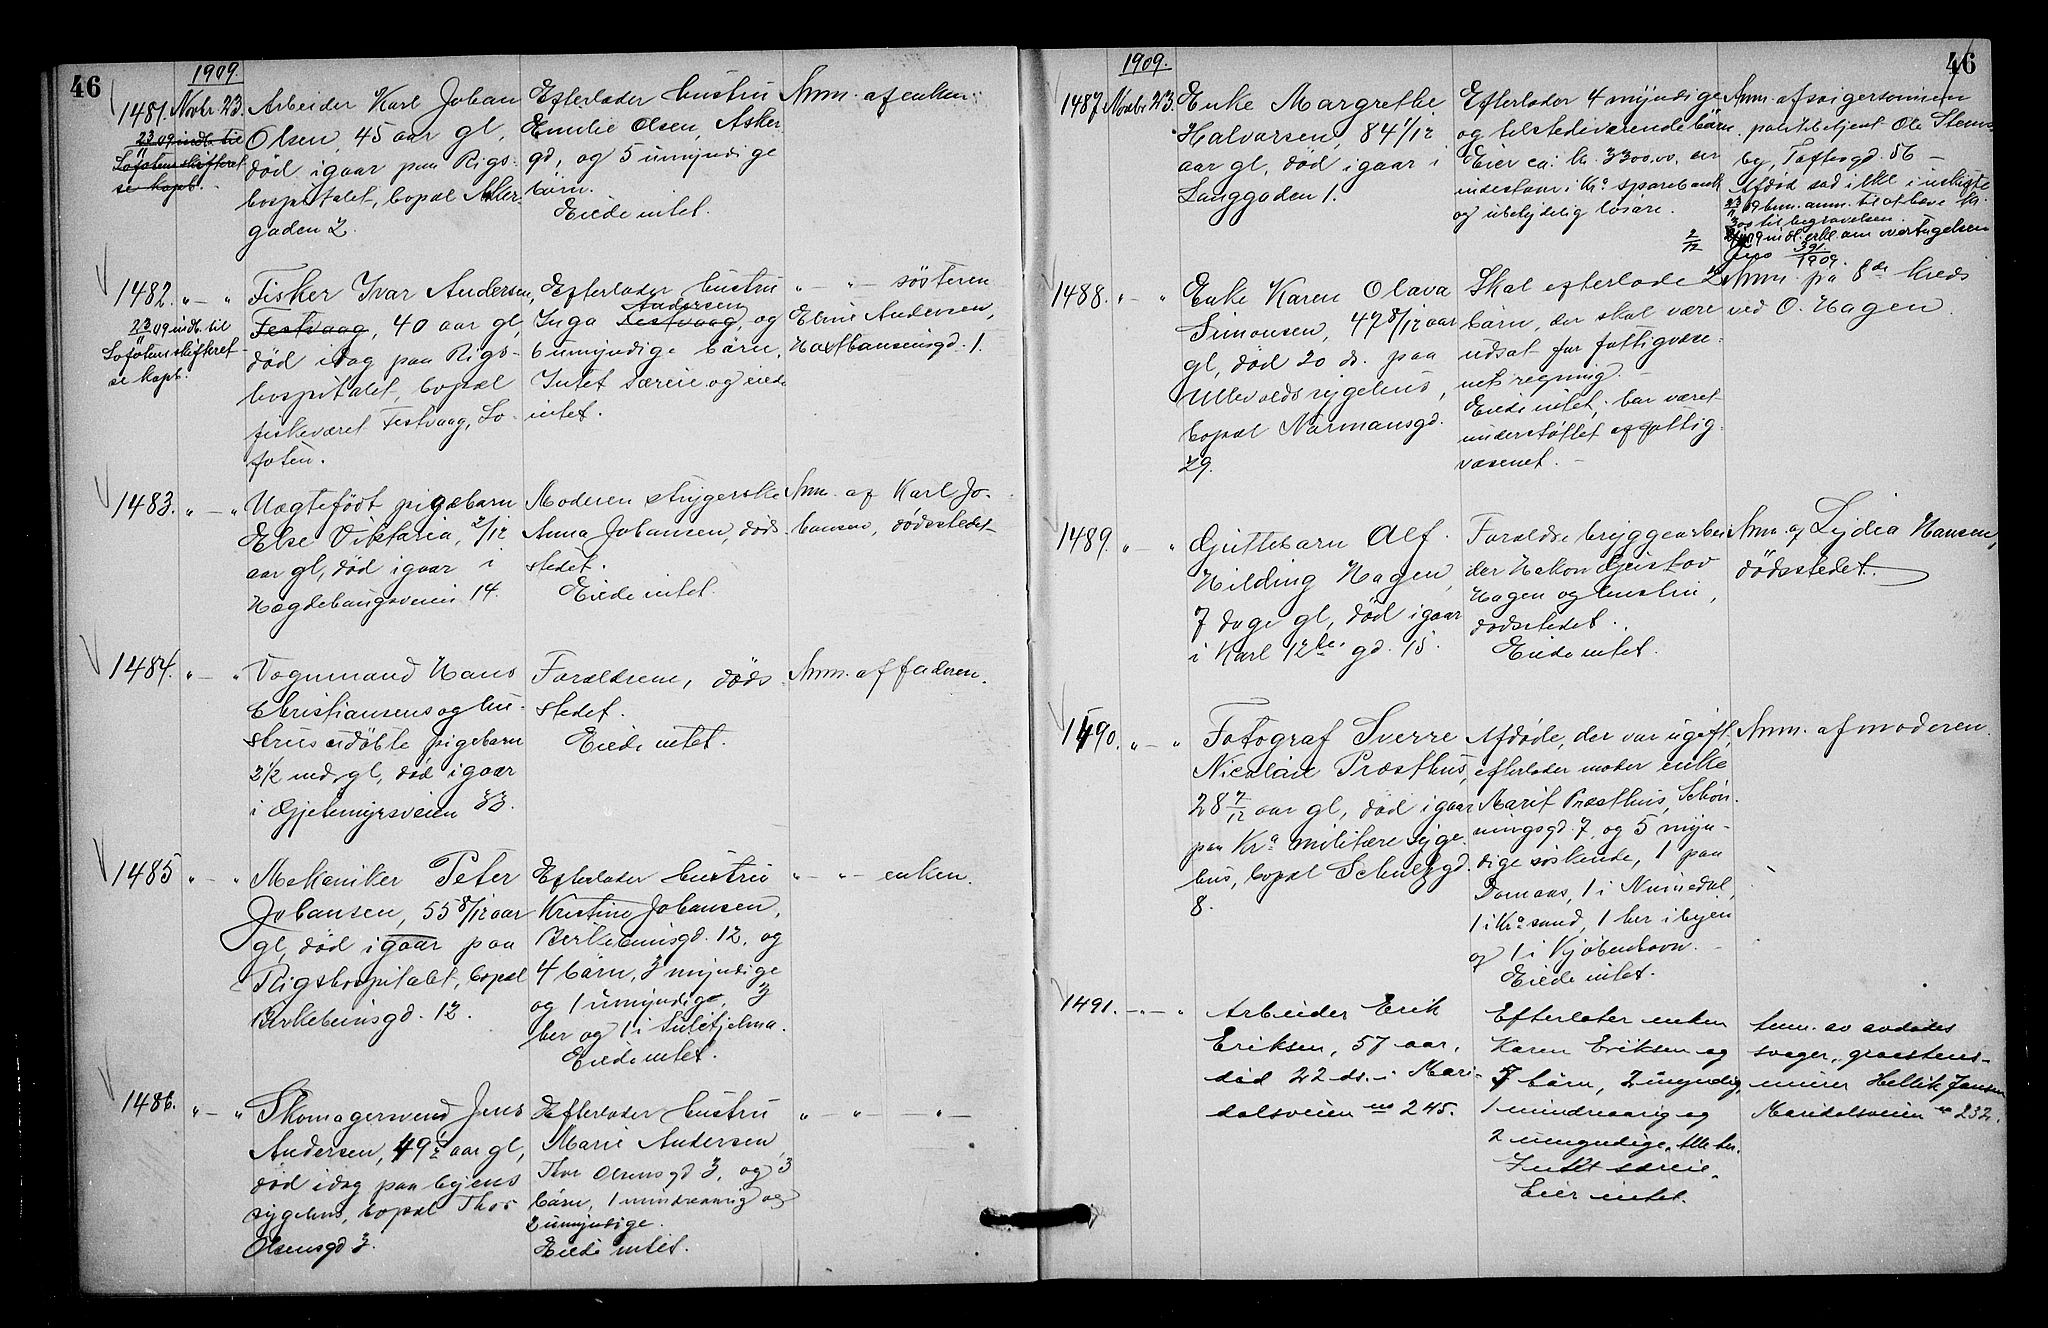 46
1909.
1481. Novbr. 23.
23/11 09 indb. til
Lofotens skifteret
se kopb.
Arbeider Karl Johan
Olsen, 45 aar gl,
død igaar paa Rigs-
hospitalet, bopæl Aker-
gaden 2.
Efterlader hustru
Emilie Olsen, Aker-
gd, og 5 umyndige
børn.
Eiede intet.
Anm. af enken.
1482. " — "
23/11 09 indb. til
Lofotens skifteret
se kopb.
Fisker Ivar Andersen,
Festvaag, 40 aar gl,
død idag paa Rigs-
hospitalet, bopæl
fiskeværet Festvaag, Lo-
foten.
Efterlader hustru
Andersen
Inga Festvaag, og
6 umyndige børn.
Intet særeie og eiede
intet.
" — " — søsteren
Eline Andersen,
gd. 1.
1483. " — "
Uægtefødt pigebarn
Else Viktoria, 2/12
aar gl, død igaar i
Hegdehaugsveien 14.
Moderen strygerske
Anna Johansen, døds-
stedet.
Eiede intet.
Anm. af Karl Jo-
hansen, dødsstedet
1484. " — "
Vognmand Hans
Christiansens og hu-
strus udøbte pigebarn
2 1/2 md. gl, død igaar
i Gjetemyrsveien 33.
Forældrene, døds-
stedet.
Eiede intet.
Anm. af faderen.
1485 " — "
Mekaniker Peter
Johansen, 55 8/12 aar
gl, død igaar paa
Rigshospitalet, bopæl
Birkebeinsgd. 12.
Efterlader hustru
Kristine Johansen,
Birkebeinsgd. 12, og
4 børn, 3 myndige
og 1 umyndige, 3
her og 1 i Sulitjelma.
Eiede intet.
" — " — enken.
1486. " — "
Skomagersvend Jens
Andersen, 49 1/2 aar gl,
død idag paa byens
sygehus, bopæl Thor
Olsensgd 3.
Efterlader hustru
Marie Andersen,
Thor Olsensgd 3, og 3
børn, 1 mindreaarig og
2 umyndige.
Eiede intet.
" — " — " —
46
1909.
1487. Novbr. 23.
Enke Margrethe
Halvorsen, 84 1/12
aar gl, død igaar i
Langgaden 1.
Efterlader 4 myndige
og tilstedeværende børn.
Eier ca. kr. 3300,00, der
indestaar i Kra sparebank
og ubetydelig løsøre.
Anm. af svigersønnen
politibetjent Ole Stens-
by, Toftesgd. 56 —
Afdød sad ikke i uskifte
23/11 09 anm. til at hæve kr.
300 til begravelsen.
2/12 09 indl. erkl. om overtagelsen
2/12
391
1909.
1488. " — "
Enke Karen Olava
Simonsen, 47 8/12 aar
gl, død 20 ds. paa
Ullevolds sygehus,
bopæl Normansgd.
29.
Skal efterlade 2
børn, der skal være
udsat for fattigvæse-
nets regning.
Eiede intet, har været
understøttet af fattig-
væsenet. —
Anm. på 8de kreds
ved O. Hagen.
1489. " — "
Guttebarn Alf
Hilding Hagen,
7 dage gl, død igaar
i Karl 12tes gd. 15.
Forældre bryggearbei-
der Hakon Gustav
Hagen og hustru,
dødsstedet.
Eiede intet.
Anm. af Lydia Hansen,
dødsstedet.
1490. " — "
Fotograf Sverre
Nicolai Præsthus,
28 7/12 aar gl, død igaar
paa Kra militære syge-
hus, bopæl Schultzgd.
8.
Afdøde, der var ugift,
efterlader moder enke
Marit Præsthus, Schøn-
ningsgd. 7, og 5 myn-
dige søskende, 1 paa
Domaas, 1 i Numedal,
1 i Kra sand, 1 her i byen
og 1 i Kjøbenhavn. —
Eiede intet.
Anm. af moderen.
1491. " — "
Arbeider Erik
Eriksen, 57 aar,
død 22 ds. i Mari-
dalsveien no 245.
Efterlater enken
Karen Eriksen og
5 børn, 2 myndig,
1 mindreaarig og
2 umyndige. Alle her.
Intet særeie.
Eier intet.
Anm. av avdødes
svoger, graastens-
murer Hellik Jansen
Maridalsveien no 232.